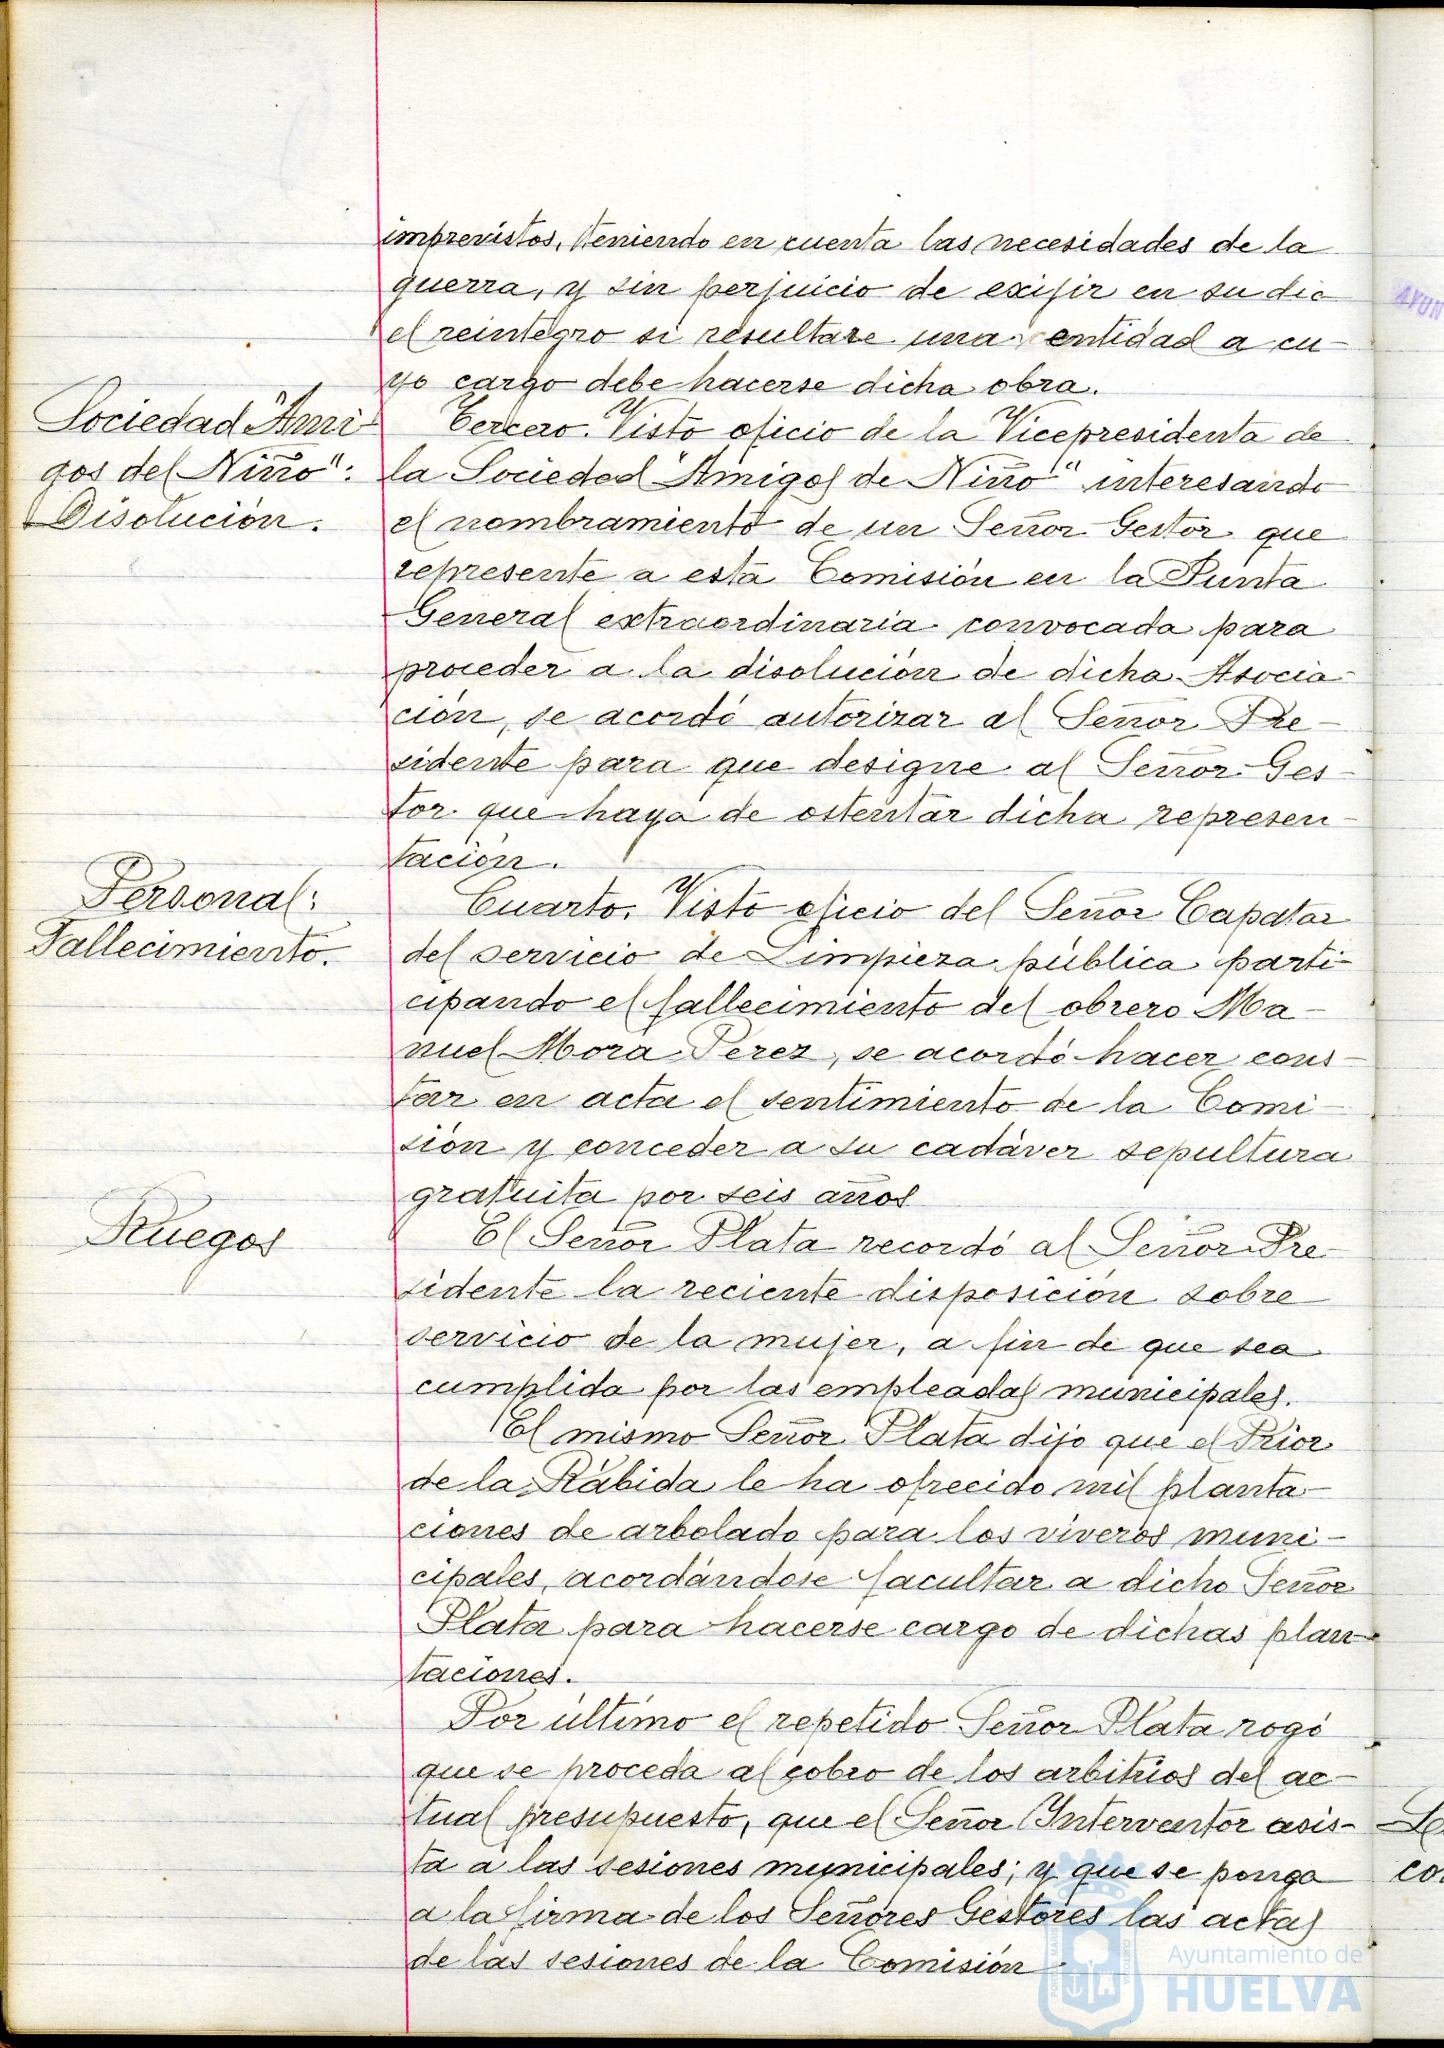 imprevistos, teniendo en cuenta las necesidades de la
guerra, y sin perjuicio de exijir en su dia
el reintegro si resultare una entidad a cu-
yo cargo debe hacerse dicha obra.
Sociedad "Ami-
gos del Niño":
Disolución.
Tercero. Visto oficio de la Vicepresidenta de
la Sociedad "Amigos de Niño" interesando
el nombramiento de un Señor Gestor que
represente a esta Comisión en la Junta
General extraordinaria convocada para
proceder a la disolución de dicha Asocia-
ción, se acordó autorizar al Señor Pre-
sidente para que designe al Señor Ges-
tor que haya de ostentar dicha represen-
tación.
Personal:
Fallecimiento.
Cuarto. Visto oficio del Señor Capataz
del servicio de Limpieza pública parti-
cipando el fallecimiento del obrero Ma-
nuel Mora Perez, se acordó hacer cons-
tar en acta el sentimiento de la Comi-
sión y conceder a su cadáver sepultura
gratuita por seis años
Ruegos
El Señor Plata recordó al Señor Pre-
sidente la reciente disposición sobre
servicio de la mujer, a fin de que sea
cumplida por las empleadas municipales.
El mismo Señor Plata dijo que el Prior
de la Rábida le ha ofrecido mil planta-
ciones de arbolado para los viveros muni-
cipales, acordándose facultar a dicho Señor
Plata para hacerse cargo de dichas plan-
taciones.
Por último el repetido Señor Plata rogó
que se proceda al cobro de los arbitrios del ac-
tual presupuesto, que el Señor Interventor asis-
ta a las sesiones municipales; y que se ponga
a la firma de los Señores Gestores las actas
de las sesiones de la Comisión
AYUN
co
Ayuntamiento de
HUELVA